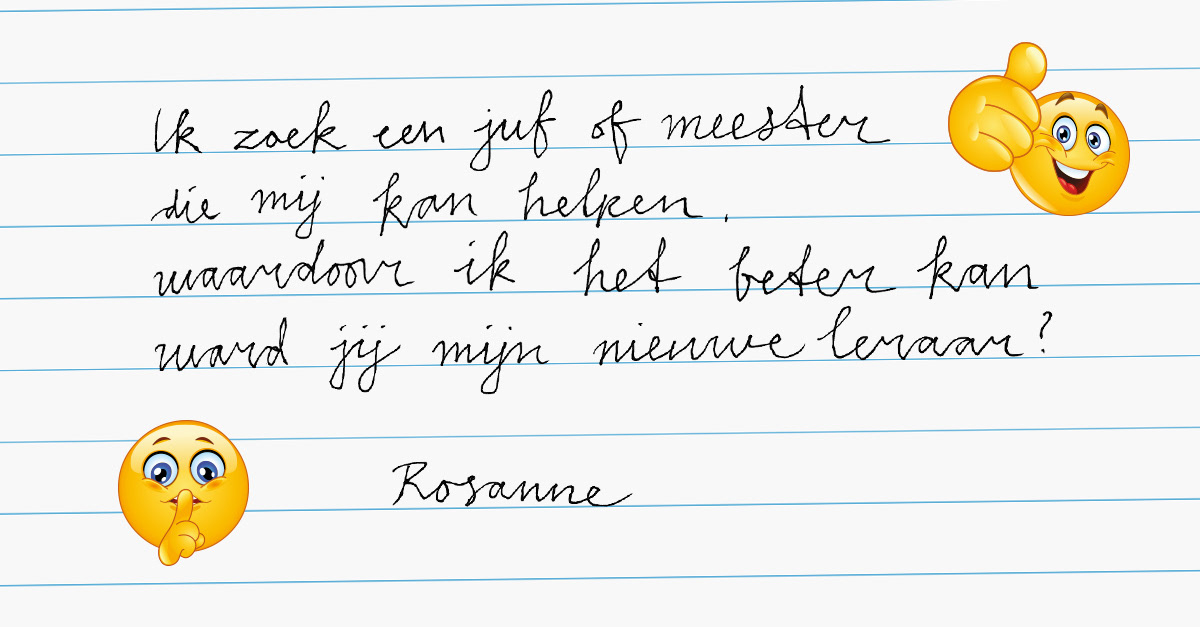 Ik zoek een juf of meester
die mij kan helpen.
waardoor ik het beter kan
ward jij mijn nieuwe leraar?
Rosanne